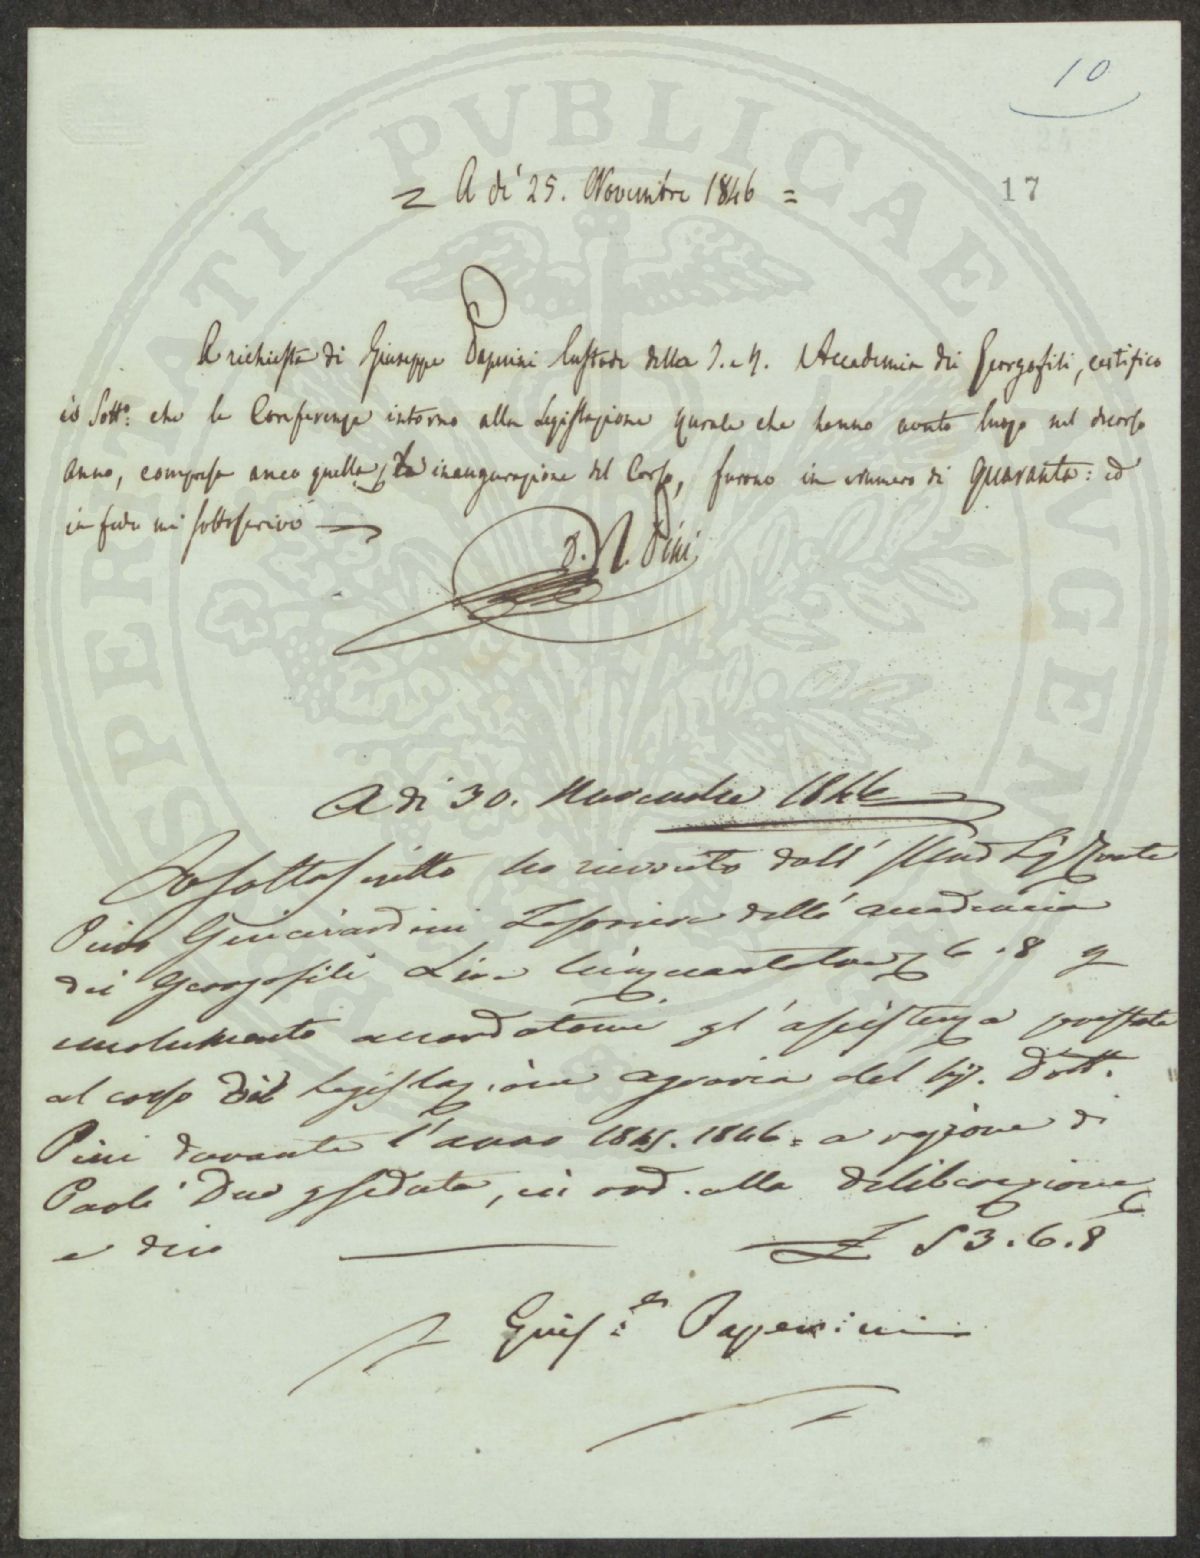 10
17
PROSPERITATI PUBLICAE AUGENDAE
= A dì 25. Novembre 1846 =
A richiesta di Giuseppe Papini Custode della I. e R. Accademia dei Georgofili, certifico
io Sotto: che le Conferenze intorno alla Legislazione rurale che hanno avuto luogo nel decorso
anno, compresa anco quella inaugurazione del Corso, furono in numero di quaranta: ed
in fede mi sottoscrivo
D. R. Pini
A dì 30. Novembre 1846
Io sottoscritto ho ricevuto dall'
Guicciardini Tesoriere dell' accademia
dei georgofili Lire Cinquantatre 6.8 p
emolumento accordatomi pl' assistenza prestata
al corso di Legislazione agraria del Sig. Dott.
Pini durante l'anno 1845. 1846 = a ragione di
Paoli Due p seduta, in ord. alla deliberazione
e dico £ 53.6.8
Gius.e Papini